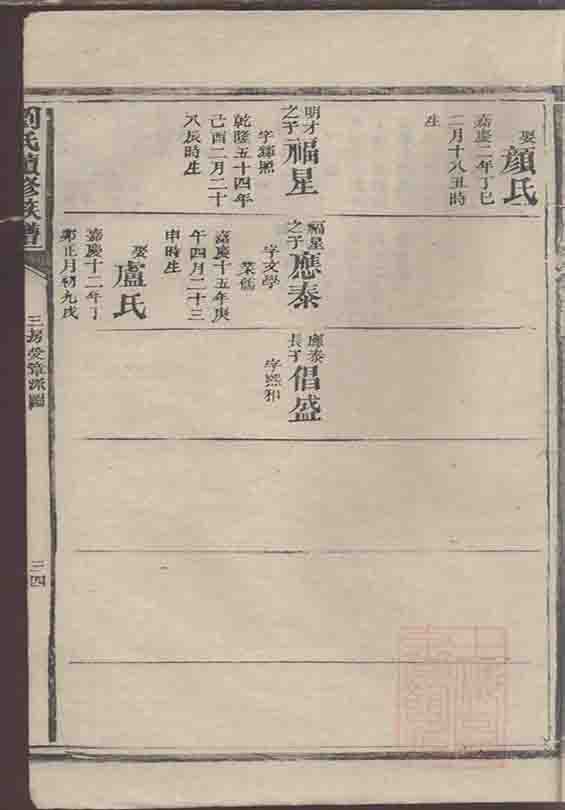 娶顏氏
嘉慶二年丁巳
二月十八丑時
生
明才
之子
福星
字輝照
乾隆五十四年
己酉二月二十
八辰時生
福星
之子
應泰
字文學
業儒
嘉慶十五年庚
午四月二十三
申時生
娶盧氏
嘉慶十二年丁
卯正月初九戌
應泰
長子
倡盛
字熙和
劉氏續修族譜
三房受章派圖
三四